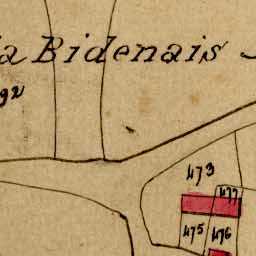 la Bidenais
92
473
477
475
476